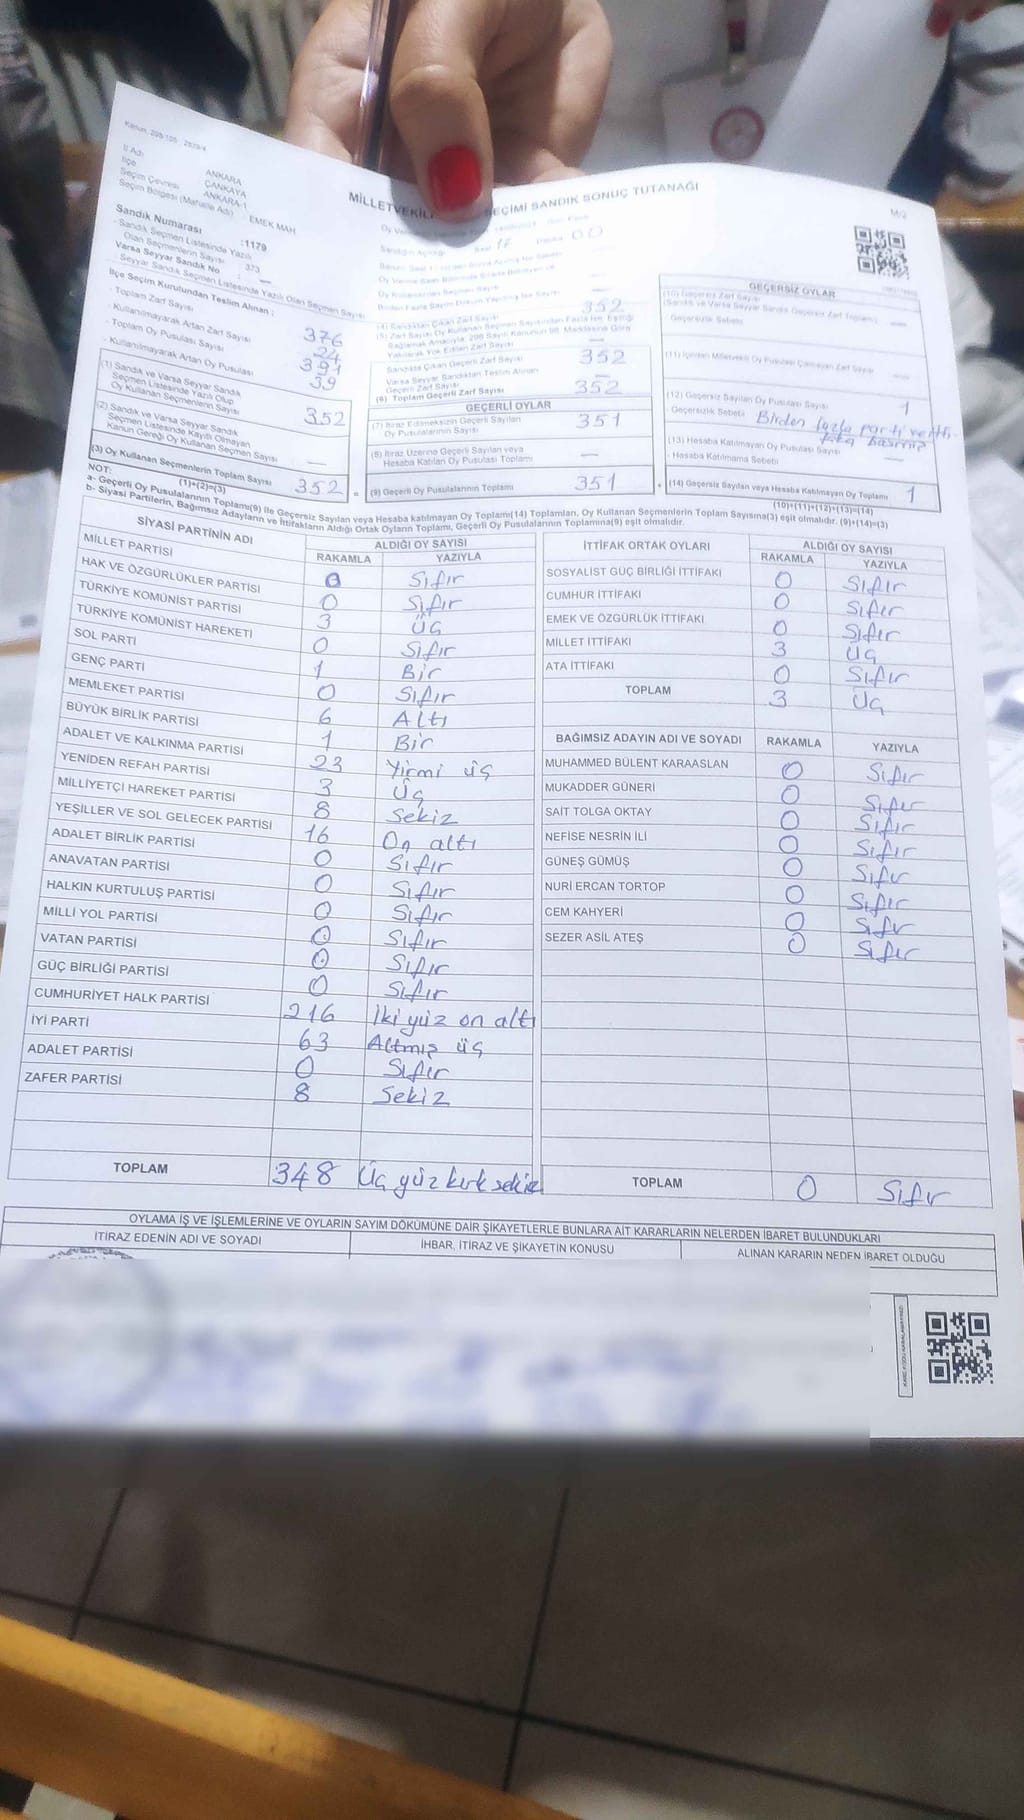 Kanun: 298/105 2839/4
İl Adı ANKARA
İlçe ÇANKAYA
Seçim Çevresi ANKARA-1
Seçim Bölgesi (Mahalle Adı) : EMEK MAH
MİLLETVEKİL SEÇİMİ SANDIK SONUÇ TUTANAĞI
M/2
Sandık Numarası :1179
- Sandık Seçmen Listesinde Yazılı
Olan Seçmenlerin Sayısı : 373
Varsa Seyyar Sandık No : —
- Seyyar Sandık Seçmen Listesinde Yazılı Olan Seçmen Sayısı
İlçe Seçim Kurulundan Teslim Alınan ;
- Toplam Zarf Sayısı 376
- Kullanılmayarak Artan Zarf Sayısı 24
- Toplam Oy Pusulası Sayısı 391
- Kullanılmayarak Artan Oy Pusulası 39
(1) Sandık ve Varsa Seyyar Sandık
Seçmen Listesinde Yazılı Olup
Oy Kullanan Seçmenlerin Sayısı 352
(2) Sandık ve Varsa Seyyar Sandık
Seçmen Listesinde Kayıtlı Olmayan
Kanun Gereği Oy Kullanan Seçmen Sayısı —
(3) Oy Kullanan Seçmenlerin Toplam Sayısı 352
(1)+(2)=(3)
Sandığın Açıldığı Saat 17 00
(4) Sandıktan Çıkan Zarf Sayısı 352
(5) Zarf Sayısı Oy Kullanan Seçmen Sayısından Fazla İse, Eşitliği
Sağlamak Amacıyla, 298 Sayılı Kanunun 98. Maddesine Göre
Yakılarak Yok Edilen Zarf Sayısı —
Sandıkta Çıkan Geçerli Zarf Sayısı 352
Varsa Seyyar Sandıktan Teslim Alınan
Geçerli Zarf Sayısı —
(6) Toplam Geçerli Zarf Sayısı 352
GEÇERLİ OYLAR
(7) İtiraz Edilmeksizin Geçerli Sayılan
Oy Pusulalarının Sayısı 351
(8) İtiraz Üzerine Geçerli Sayılan veya
Hesaba Katılan Oy Pusulası Toplamı —
(9) Geçerli Oy Pusulalarının Toplamı 351
GEÇERSİZ OYLAR
(10) Geçersiz Zarf Sayısı
(Sandık ve Varsa Seyyar Sandık Geçersiz Zarf Toplamı) —
- Geçersizlik Sebebi
(11) İçinden Milletvekili Oy Pusulası Çıkmayan Zarf Sayısı —
(12) Geçersiz Sayılan Oy Pusulası Sayısı 1
- Geçersizlik Sebebi Birden fazla parti ve itti-
faka basmış
(13) Hesaba Katılmayan Oy Pusulası Sayısı —
- Hesaba Katılmama Sebebi
(14) Geçersiz Sayılan veya Hesaba Katılmayan Oy Toplamı 1
(10)+(11)+(12)+(13)=(14)
NOT:
a- Geçerli Oy Pusulalarının Toplamı(9) ile Geçersiz Sayılan veya Hesaba katılmayan Oy Toplamı(14) Toplamları, Oy Kullanan Seçmenlerin Toplam Sayısına(3) eşit olmalıdır. (9)+(14)=(3)
b- Siyasi Partilerin, Bağımsız Adayların ve İttifakların Aldığı Ortak Oyların Toplamı, Geçerli Oy Pusulalarının Toplamına(9) eşit olmalıdır.
SİYASİ PARTİNİN ADI ALDIĞI OY SAYISI
RAKAMLA YAZIYLA
MİLLET PARTİSİ 0 Sıfır
HAK VE ÖZGÜRLÜKLER PARTİSİ 0 Sıfır
TÜRKİYE KOMÜNİST PARTİSİ 3 Üç
TÜRKİYE KOMÜNİST HAREKETİ 0 Sıfır
SOL PARTİ 1 Bir
GENÇ PARTİ 0 Sıfır
MEMLEKET PARTİSİ 6 Altı
BÜYÜK BİRLİK PARTİSİ 1 Bir
ADALET VE KALKINMA PARTİSİ 23 Yirmi üç
YENİDEN REFAH PARTİSİ 3 Üç
MİLLİYETÇİ HAREKET PARTİSİ 8 Sekiz
YEŞİLLER VE SOL GELECEK PARTİSİ 16 On altı
ADALET BİRLİK PARTİSİ 0 Sıfır
ANAVATAN PARTİSİ 0 Sıfır
HALKIN KURTULUŞ PARTİSİ 0 Sıfır
MİLLİ YOL PARTİSİ 0 Sıfır
VATAN PARTİSİ 0 Sıfır
GÜÇ BİRLİĞİ PARTİSİ 0 Sıfır
CUMHURİYET HALK PARTİSİ 216 İki yüz on altı
İYİ PARTİ 63 Altmış üç
ADALET PARTİSİ 0 Sıfır
ZAFER PARTİSİ 8 Sekiz
TOPLAM 348 Üç yüz kırk sekiz
İTTİFAK ORTAK OYLARI ALDIĞI OY SAYISI
RAKAMLA YAZIYLA
SOSYALİST GÜÇ BİRLİĞİ İTTİFAKI 0 Sıfır
CUMHUR İTTİFAKI 0 Sıfır
EMEK VE ÖZGÜRLÜK İTTİFAKI 0 Sıfır
MİLLET İTTİFAKI 3 Üç
ATA İTTİFAKI 0 Sıfır
TOPLAM 3 Üç
BAĞIMSIZ ADAYIN ADI VE SOYADI RAKAMLA YAZIYLA
MUHAMMED BÜLENT KARAASLAN 0 Sıfır
MUKADDER GÜNERİ 0 Sıfır
SAİT TOLGA OKTAY 0 Sıfır
NEFİSE NESRİN İLİ 0 Sıfır
GÜNEŞ GÜMÜŞ 0 Sıfır
NURİ ERCAN TORTOP 0 Sıfır
CEM KAHYERİ 0 Sıfır
SEZER ASİL ATEŞ 0 Sıfır
TOPLAM 0 Sıfır
OYLAMA İŞ VE İŞLEMLERİNE VE OYLARIN SAYIM DÖKÜMÜNE DAİR ŞİKAYETLERLE BUNLARA AİT KARARLARIN NELERDEN İBARET BULUNDUKLARI
İTİRAZ EDENİN ADI VE SOYADI İHBAR, İTİRAZ VE ŞİKAYETİN KONUSU ALINAN KARARIN NEDEN İBARET OLDUĞU